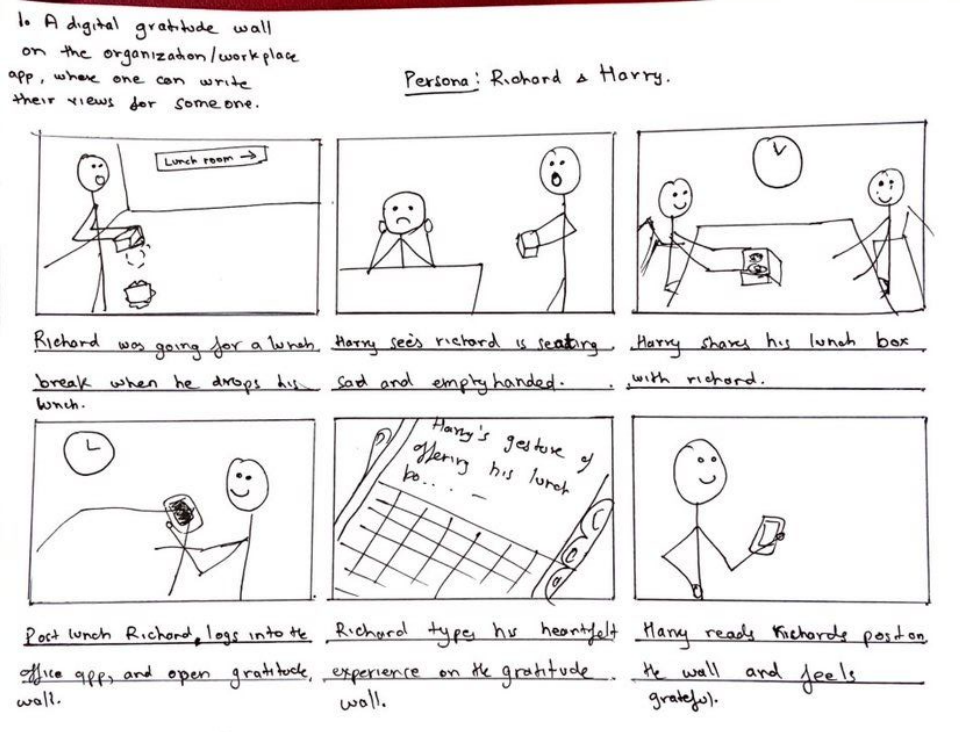 1. A digital gratitude wall
on the organization/workplace
app, where one can write
their views for someone.
Persona: Richard & Harry.
Lunch room →
Richard was going for a lunch
break when he drops his
lunch.
Harry sees richard is seating
sad and emptyhanded.
Harry shares his lunch box
with richard.
Harry's gesture of
offering his lunch
bo.... -
Post lunch Richard, logs into the
office app, and open gratitude
wall.
Richard types his heartfelt
experience on the gratitude
wall.
Harry reads Richards post on
the wall and feels
grateful.